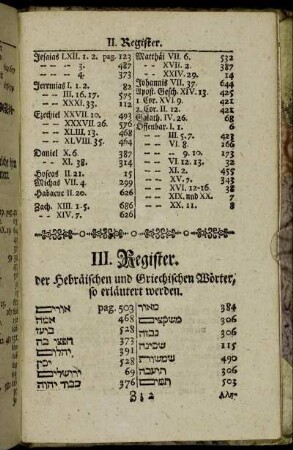 II. Register.
Jesaias LXII. 1. 2. pag. 123
-- -- 3. 487
-- -- 4. 373
Jeremias I. 1. 2. 82
-- -- III. 16. 17. 575
-- -- XXXI. 33. 112
Ezechiel XXVII. 10. 493
-- -- XXXVII. 26. 576
-- -- XLIII. 13. 468
-- -- XLVIII. 35. 464
Daniel X. 6. 387
-- -- XI. 38. 314
Hoseas II. 21. 15
Michas VII. 4. 299
Habacuc II. 20. 626
Zach. XIII. 1-5. 686
-- -- XIV. 7. 626
Matthäi VII. 6. 532
-- -- XVII. 2. 387
-- -- XXIV. 29. 14
-- -- 644
Johannis VII. 37. 421
Apost. Gesch. XIV. 13. 425
1 Cor. XVI. 9. 421
2. Cor. II. 12. 421
Galath. IV. 26. 68
Offenbar. I. 1. 6
-- -- III. 5. 7. 423
-- -- VI. 8. 166
-- -- -- 9. 10. 173
-- -- VI. 12. 13. 32
-- -- XI. 2. 455
-- -- XV. 7. 343
-- -- XVI. 12-16. 38
-- -- XIX. und XX. 7
-- -- XX. 11. 8
III. Register.
der Hebräischen und Griechischen Wörter,
so erläutert werden.
אורים pag. 503
אמה 468
בועז 528
חפצי בה 373
יהלום 391
יכין 528
ירושלים 69
כבוד יהוה 376
מאור 384
משקצים 306
נבזה 306
שכינה 115
שמשורת 490
תועבה 306
תמים 503
Als-